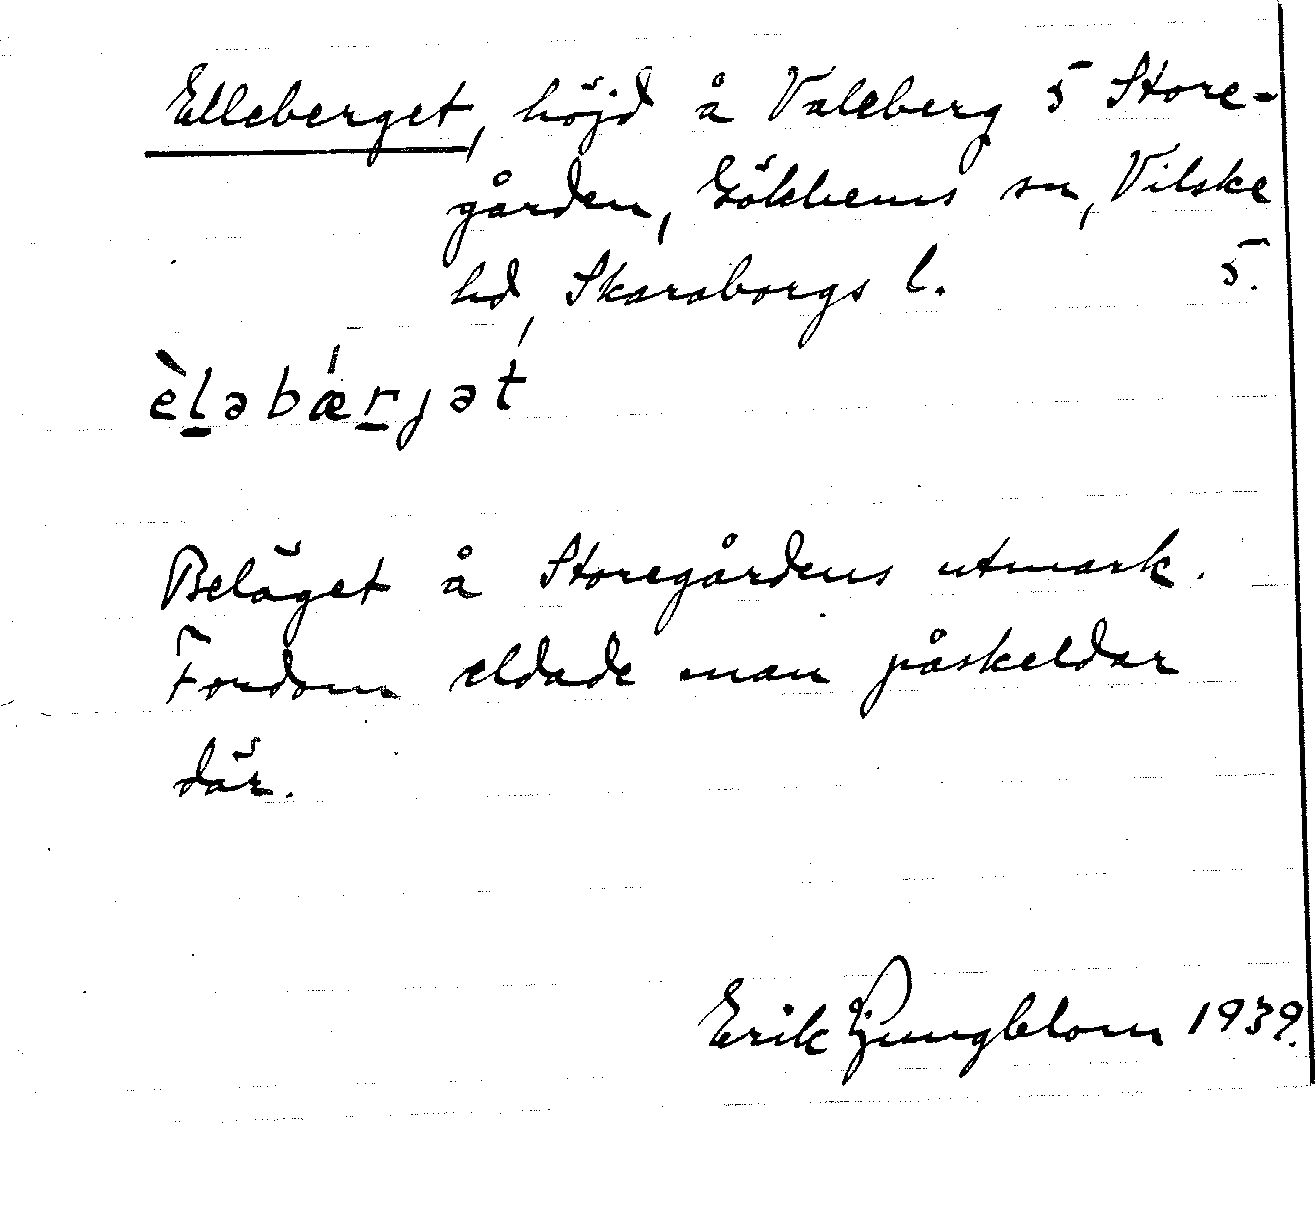 Elleberget, höjd å Valeberg 5 Store-
gården, Gökhems sn, Vilske
hd, Skaraborgs l. 5.
èl̠əbǽr̠jət
Beläget å Storegårdens utmark.
Fordom eldade man påskeldar
där.
Erik Ljungblom 1939.